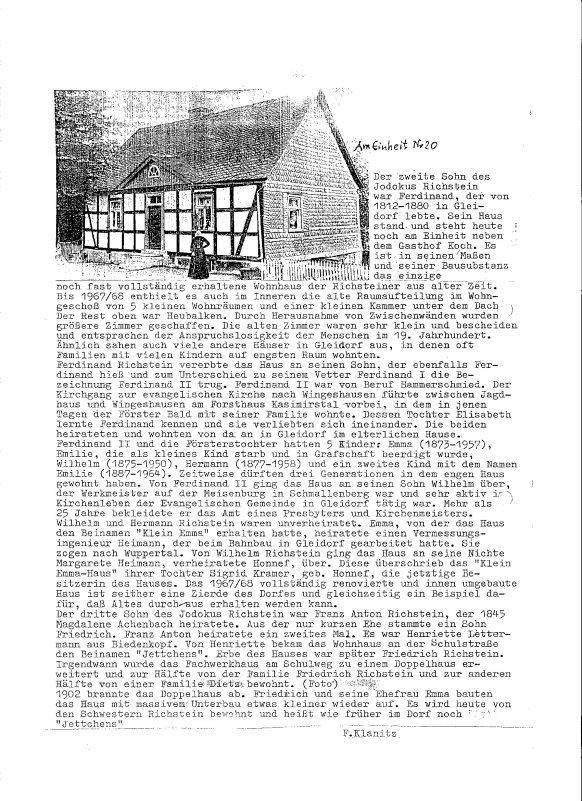 Am Einheit No 20
Der zweite Sohn des
Jodokus Richstein
war Ferdinand, der von
1812-1880 in Glei-
dorf lebte. Sein Haus
stand und steht heute
noch am Einheit neben
dem Gasthof Koch. Es
ist in seinen Maßen
und seiner Bausubstanz
das einzige
noch fast vollständig erhaltene Wohnhaus der Richsteiner aus alter Zeit.
Bis 1967/68 enthielt es auch im Inneren die alte Raumaufteilung im Wohn-
geschoß von 5 kleinen Wohnräumen und einer kleinen Kammer unter dem Dach
Der Rest oben war Heubalken. Durch Herausnahme von Zwischenwänden wurden
größere Zimmer geschaffen. Die alten Zimmer waren sehr klein und bescheiden
und entsprachen der Anspruchslosigkeit der Menschen im 19. Jahrhundert.
Ähnlich sahen auch viele andere Häuser in Gleidorf aus, in denen oft
Familien mit vielen Kindern auf engstem Raum wohnten.
Ferdinand Richstein vererbte das Haus an seinen Sohn, der ebenfalls Fer-
dinand hieß und zum Unterschied zu seinem Vetter Ferdinand I die Be-
zeichnung Ferdinand II trug. Ferdinand II war von Beruf Hammerschmied. Der
Kirchgang zur evangelischen Kirche nach Wingeshausen führte zwischen Jagd-
haus und Wingeshausen am Forsthaus Kasimirstal vorbei, in dem in jenen
Tagen der Förster Bald mit seiner Familie wohnte. Dessen Tochter Elisabeth
lernte Ferdinand kennen und sie verliebten sich ineinander. Die beiden
heirateten und wohnten von da an in Gleidorf im elterlichen Hause.
Ferdinand II und die Försterstochter hatten 5 Kinder: Emma (1873-1957),
Emilie, die als kleines Kind starb und in Grafschaft beerdigt wurde,
Wilhelm (1875-1950), Hermann (1877-1958) und ein zweites Kind mit dem Namen
Emilie (1887-1964). Zeitweise dürften drei Generationen in dem engen Haus
gewohnt haben. Von Ferdinand II ging das Haus an seinen Sohn Wilhelm über,
der Werkmeister auf der Meisenburg in Schmallenberg war und sehr aktiv im
Kirchenleben der Evangelischen Gemeinde in Gleidorf tätig war. Mehr als
25 Jahre bekleidete er das Amt eines Presbyters und Kirchenmeisters.
Wilhelm und Hermann Richstein waren unverheiratet. Emma, von der das Haus
den Beinamen "Klein Emma" erhalten hatte, heiratete einen Vermessungs-
ingenieur Heimann, der beim Bahnbau in Gleidorf gearbeitet hatte. Sie
zogen nach Wuppertal. Von Wilhelm Richstein ging das Haus an seine Nichte
Margarete Heimann, verheiratete Honnef, über. Diese überschrieb das "Klein
Emma-Haus" ihrer Tochter Sigrid Kramer, geb. Honnef, die jetztige Be-
sitzerin des Hauses. Das 1967/68 vollständig renovierte und innen umgebaute
Haus ist seither eine Zierde des Dorfes und gleichzeitig ein Beispiel da-
für, daß Altes durch-aus erhalten werden kann.
Der dritte Sohn des Jodokus Richstein war Franz Anton Richstein, der 1845
Magdalene Achenbach heiratete. Aus der nur kurzen Ehe stammte ein Sohn
Friedrich. Franz Anton heiratete ein zweites Mal. Es war Henriette Letter-
mann aus Biedenkopf. Von Henriette bekam das Wohnhaus an der Schulstraße
den Beinamen "Jettchens". Erbe des Hauses war später Friedrich Richstein.
Irgendwann wurde das Fachwerkhaus am Schulweg zu einem Doppelhaus er-
weitert und zur Hälfte von der Familie Friedrich Richstein und zur anderen
Hälfte von einer Familie Dietz bewohnt. (Foto)
1902 brannte das Doppelhaus ab. Friedrich und seine Ehefrau Emma bauten
das Haus mit massivem Unterbau etwas kleiner wieder auf. Es wird heute von
den Schwestern Richstein bewohnt und heißt wie früher im Dorf noch
"Jettchens"
F.Klanitz